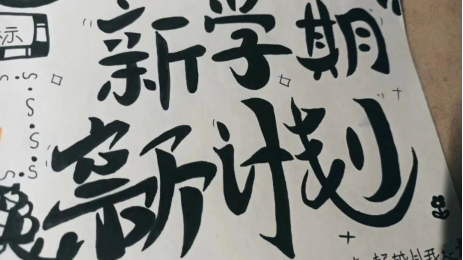 标
新学期
新计划